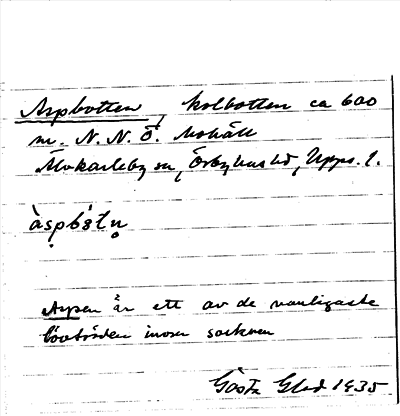 Aspbotten, kolbotten ca 600
m. N.N.Ö.
Älvkarleby sn, Örbyhus hd, Upps. l.
àspbótn̥
Aspen är ett av de vanligaste
lövträden inom socknen
Gösta Gled 1935